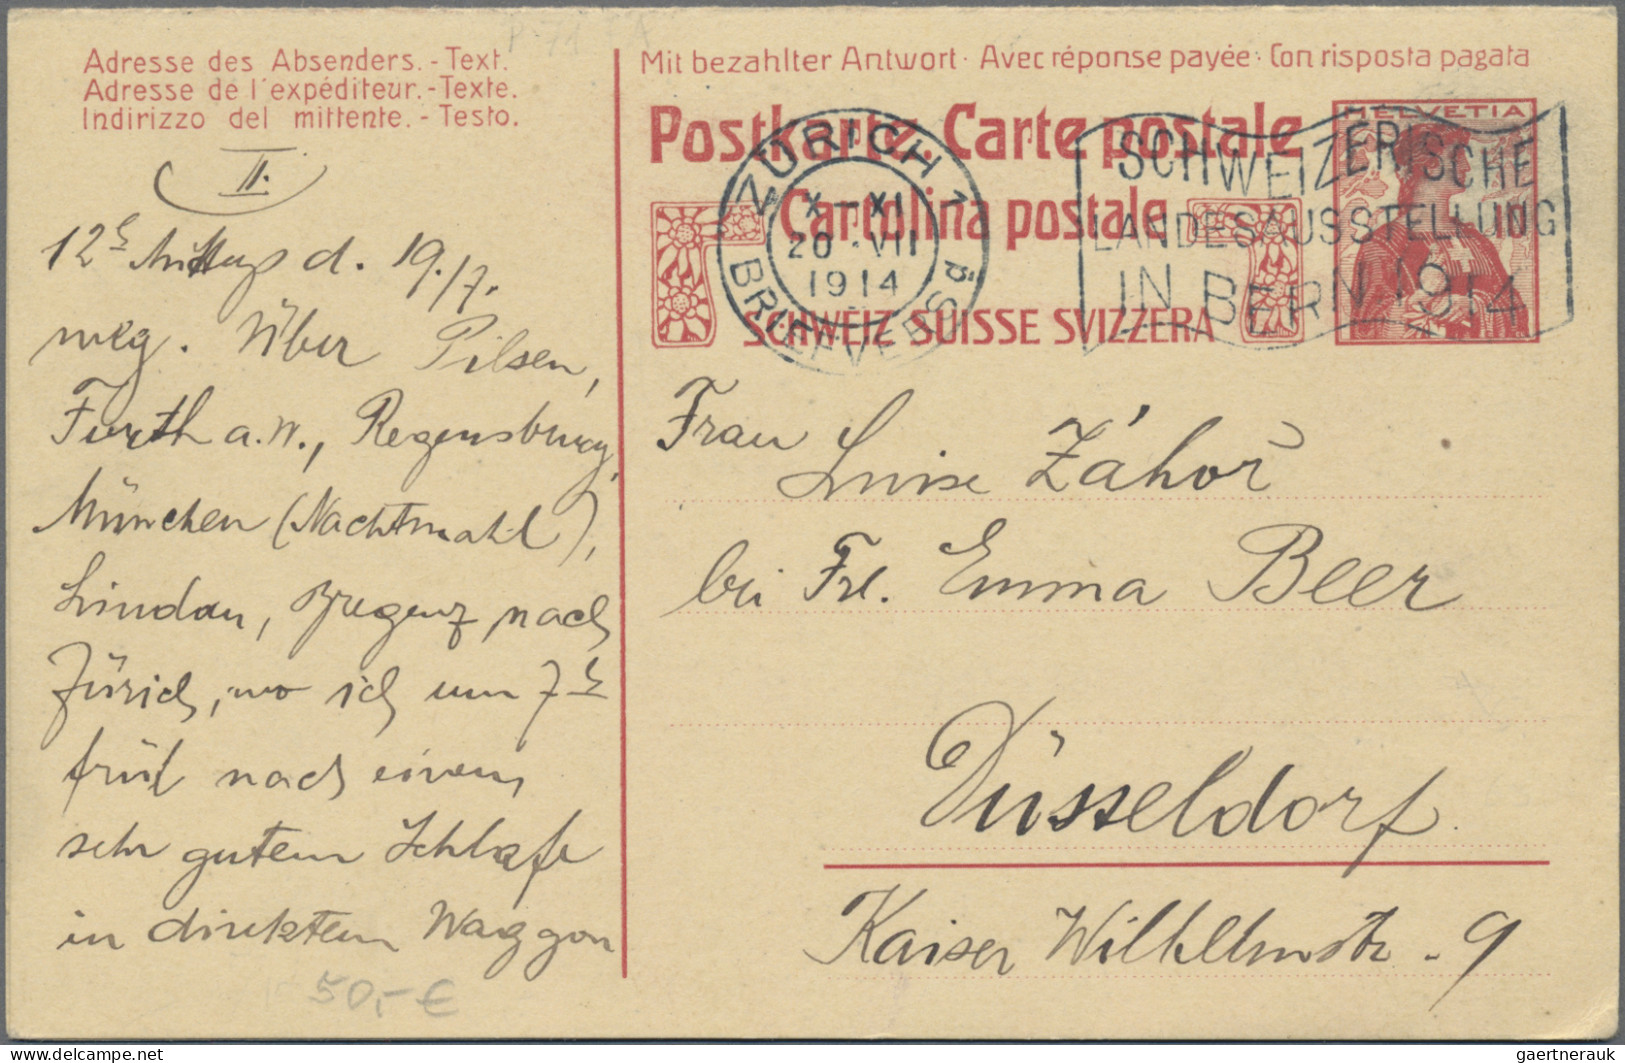 P 71
Adresse des Absenders. - Text.
Adresse de l'expéditeur. - Texte.
Indirizzo del mittente. - Testo.
II.
12h Mittags d. 19./7.
weg. Über Pilsen,
Furth a.W., Regensburg,
München (Nachtmahl),
Lindau, Bregenz nach
Zürich, wo ich um 7h
früh nach einem
sehr gutem Schlafe
in direktem Waggon
50,- €
Mit bezahlter Antwort · Avec réponse payée · Con risposta pagata
Postkarte. Carte postale
Cartolina postale
SCHWEIZ SUISSE SVIZZERA
HELVETIA
ZÜRICH 1
X-XI
20.VII
1914
BRIEFVERSD
SCHWEIZERISCHE
LANDESAUSSTELLUNG
IN BERN 1914
Frau
Luise Záhoř
bei Frl. Emma Beer
Düsseldorf.
Kaiser Wilhelmstr. 9
delcampe.net
gaertnerauk